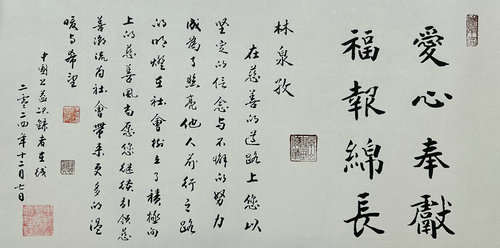 愛心奉獻
福報綿長
林泉孜
在慈善的道路上您以
堅定的信念与不懈的努力
成為了照亮他人前行之路
的明燈在社會樹立了積極向
上的慈善風尚愿您继续引领慈
善潮流為社會帶来更多的温
暖与希望
中國公益记錄者在线
二零二四年十二月七日